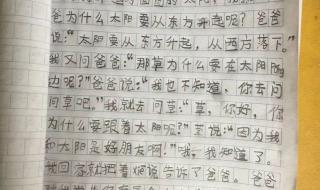 爸为什么太阳要从东方升起呢？爸爸
说：“太阳要从东方升起，从西方落下。”
我又问爸爸：“那草为什么要在太阳的
边呢？”爸爸说：“我也不知道，你去问
问草吧。”我就去问草：“草，你好，你
为什么要跟着太阳呢？”草说：“因为我
和太阳是好朋友啊！”哦，我知道了。
我回家就把着 说告诉了爸爸，爸爸